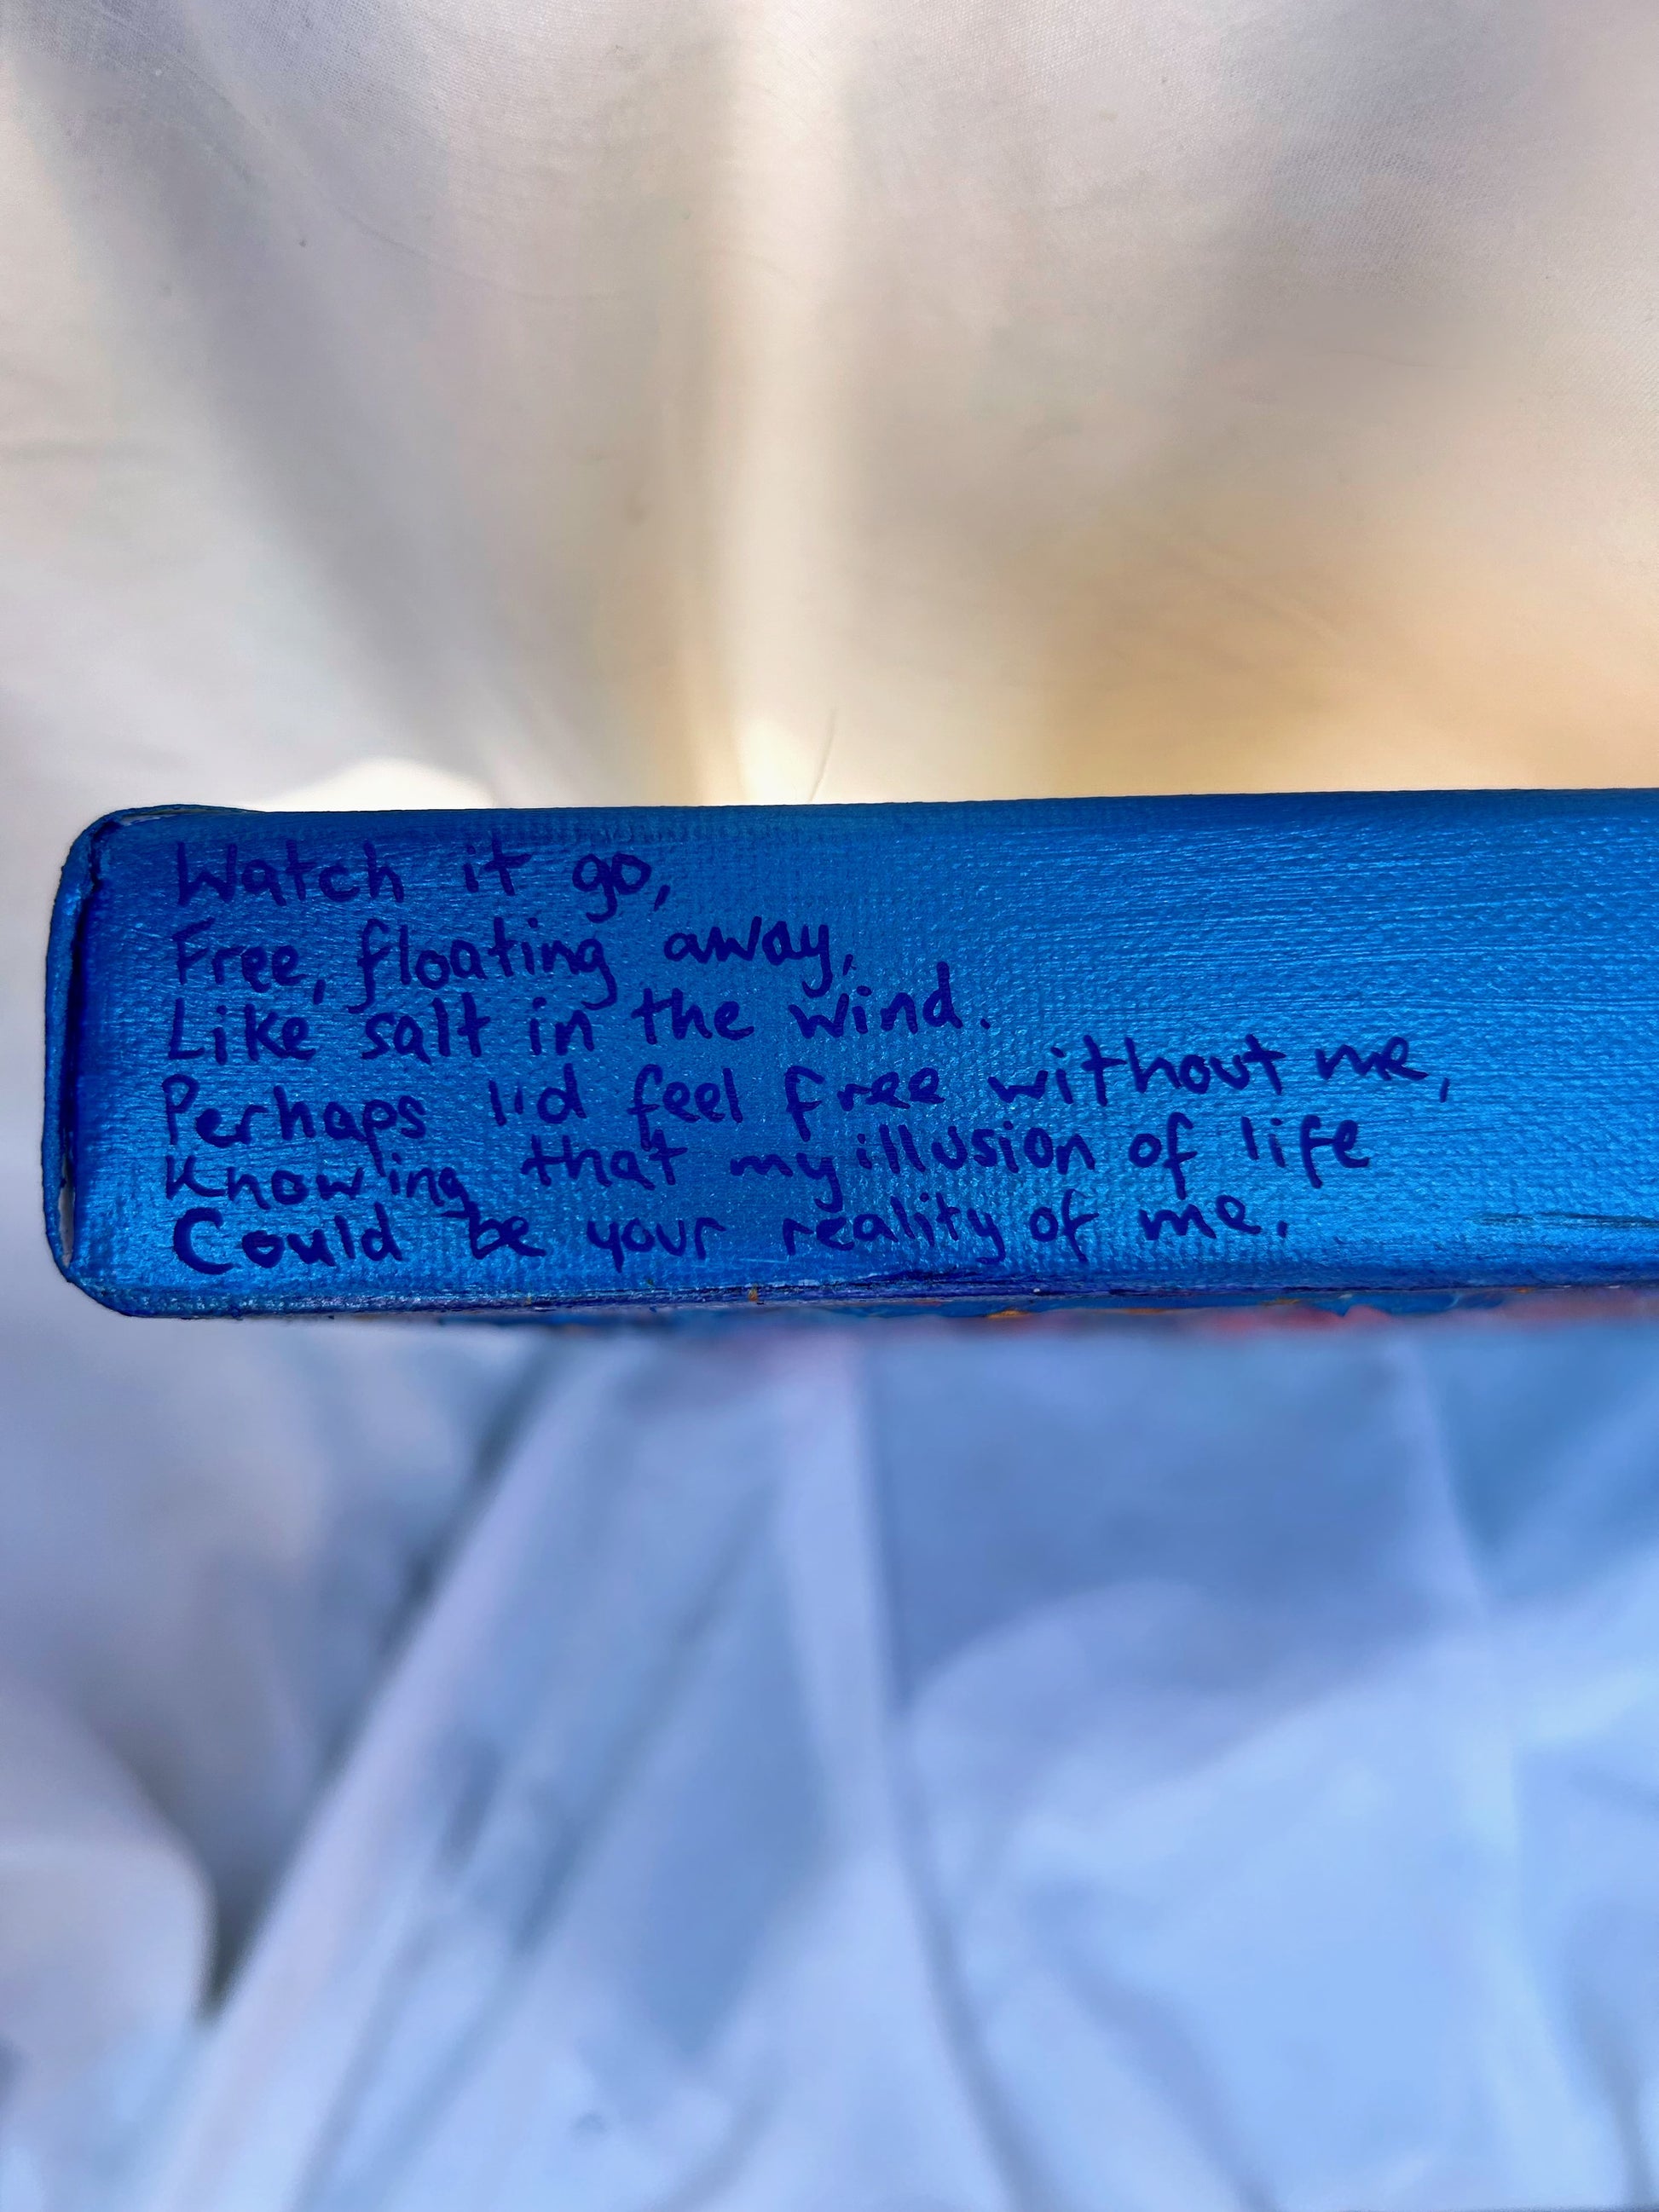 Watch it go,
Free, floating away,
Like salt in the wind.
Perhaps I'd feel free without me,
Knowing that my illusion of life
Could be your reality of me.